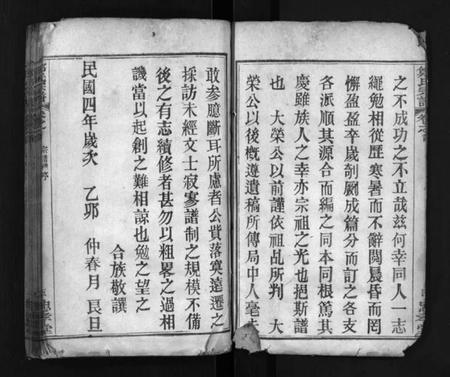 之不成功之不立哉茲何幸同人一志
繩勉相從歷寒暑而不辭閱晨昏而罔
懈盈盈卒歲剞劂成篇分而訂之各支
各派順其源合而編之同本同根篤其
慶雖族人之幸亦宗祖之光也挹斯譜
也 大榮公以前謹依祖乩所判 大
榮公以後概遵遺稿所傳局中人毫
敢參臆斷耳所慮者公貲落寞遠遷之
採訪未經文士寂寥譜制之規模不備
後之有志續修者甚勿以粗畧之過相
譏當以起創之難相諒也勉之望之
合族敬譔
民國四年歲次 乙卯 仲春月 良旦